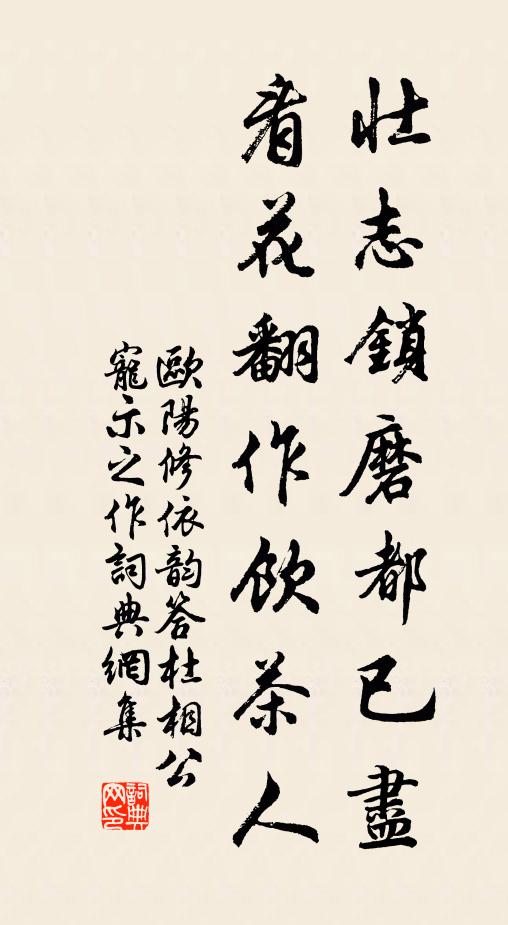 壯志鎖磨都已盡
看花翻作飲茶人
歐陽修依韵答杜相公
寵示之作詞典網集
詞典
网印